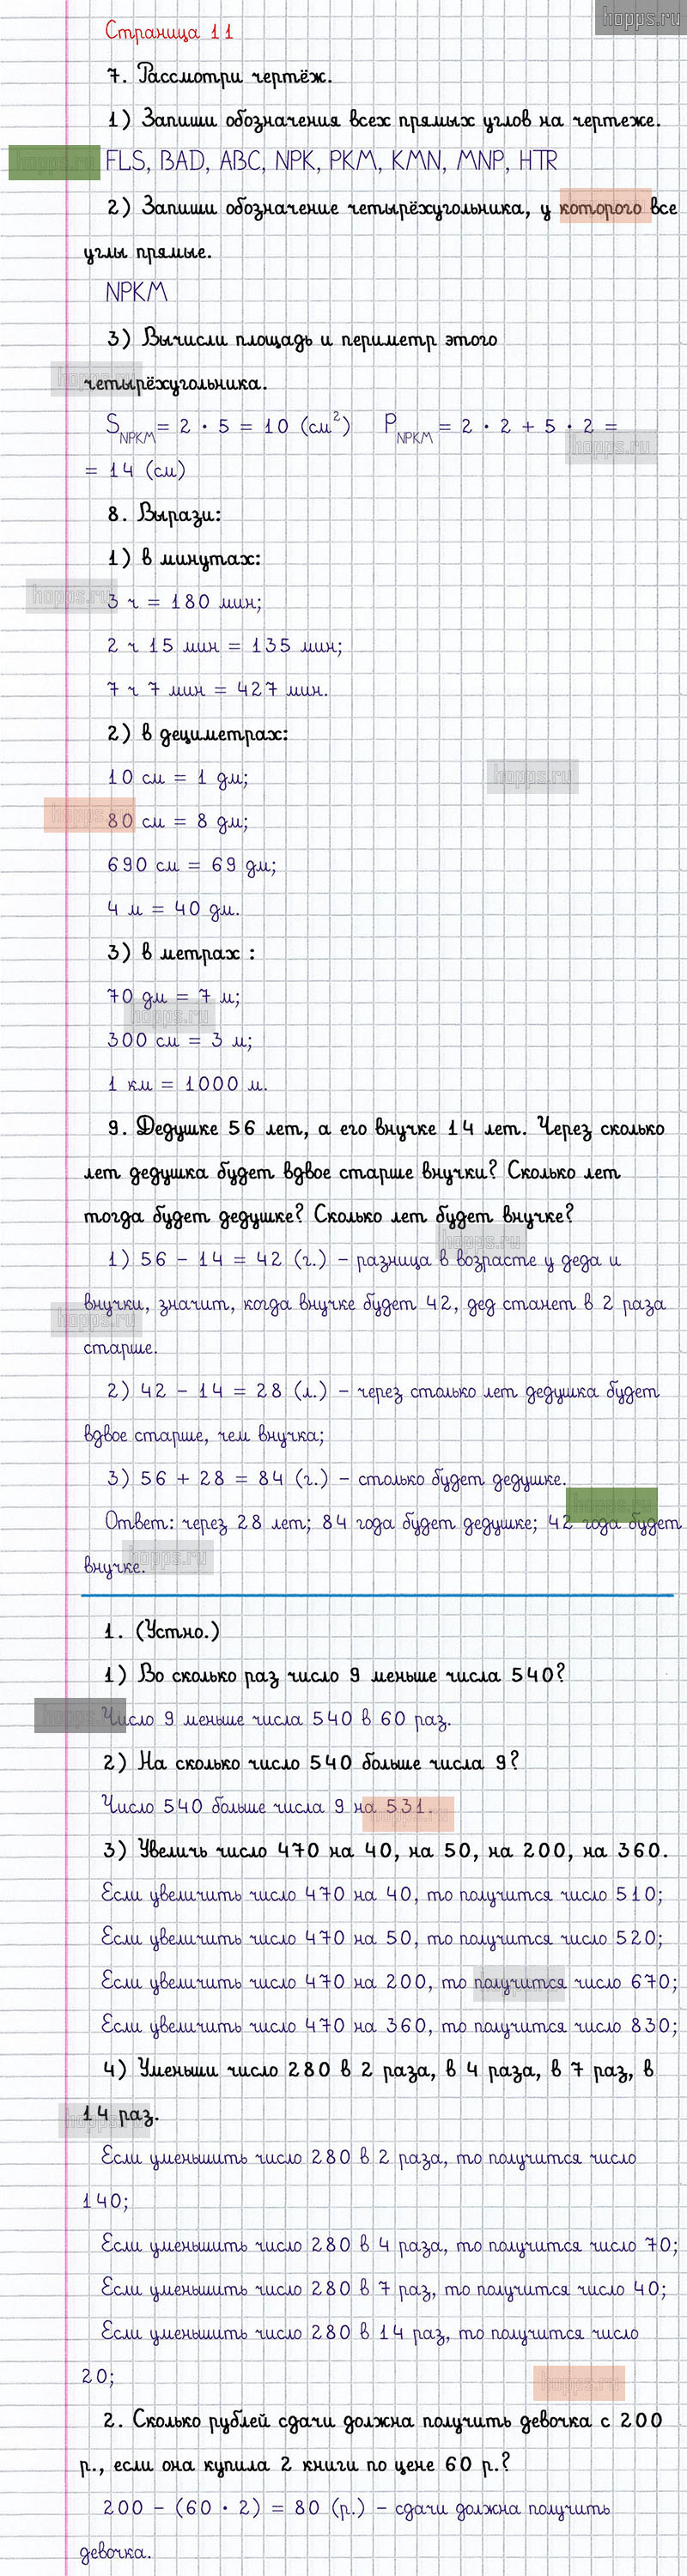 hopps.ru
Страница 11
7. Рассмотри чертёж.
1) Запиши обозначения всех прямых углов на чертеже.
hopps.ru
FLS, BAD, ABC, NPK, PKM, KMN, MNP, HTR
2) Запиши обозначение четырёхугольника, у которого все
углы прямые.
NPKM
3) Вычисли площадь и периметр этого
hopps.ru
четырёхугольника.
S NPKM = 2 · 5 = 10 (см²) P NPKM = 2 · 2 + 5 · 2 =
hopps.ru
= 14 (см)
8. Вырази:
1) в минутах:
hopps.ru
3 ч = 180 мин;
2 ч 15 мин = 135 мин;
7 ч 7 мин = 427 мин.
2) в дециметрах:
10 см = 1 дм;
hopps.ru
hopps.ru
80 см = 8 дм;
690 см = 69 дм;
4 м = 40 дм.
3) в метрах :
70 дм = 7 м;
hopps.ru
300 см = 3 м;
1 км = 1000 м.
9. Дедушке 56 лет, а его внучке 14 лет. Через сколько
лет дедушка будет вдвое старше внучки? Сколько лет
тогда будет дедушке? Сколько лет будет внучке?
hopps.ru
1) 56 - 14 = 42 (г.) - разница в возрасте у деда и
внучки, значит, когда внучке будет 42, дед станет в 2 раза
hopps.ru
старше.
2) 42 - 14 = 28 (л.) - через столько лет дедушка будет
вдвое старше, чем внучка;
3) 56 + 28 = 84 (г.) - столько будет дедушке.
Ответ: через 28 лет; 84 года будет дедушке; 42 года будет
hopps.ru
внучке.
1. (Устно.)
1) Во сколько раз число 9 меньше числа 540?
hopps.ru
Число 9 меньше числа 540 в 60 раз.
2) На сколько число 540 больше числа 9?
Число 540 больше числа 9 на 531.
hopps.ru
3) Увеличь число 470 на 40, на 50, на 200, на 360.
Если увеличить число 470 на 40, то получится число 510;
Если увеличить число 470 на 50, то получится число 520;
Если увеличить число 470 на 200, то получится число 670;
Если увеличить число 470 на 360, то получится число 830;
4) Уменьши число 280 в 2 раза, в 4 раза, в 7 раз, в
hopps.ru
14 раз.
Если уменьшить число 280 в 2 раза, то получится число
140;
Если уменьшить число 280 в 4 раза, то получится число 70;
Если уменьшить число 280 в 7 раз, то получится число 40;
Если уменьшить число 280 в 14 раз, то получится число
20;
hopps.ru
2. Сколько рублей сдачи должна получить девочка с 200
р., если она купила 2 книги по цене 60 р.?
200 - (60 · 2) = 80 (р.) - сдачи должна получить
девочка.